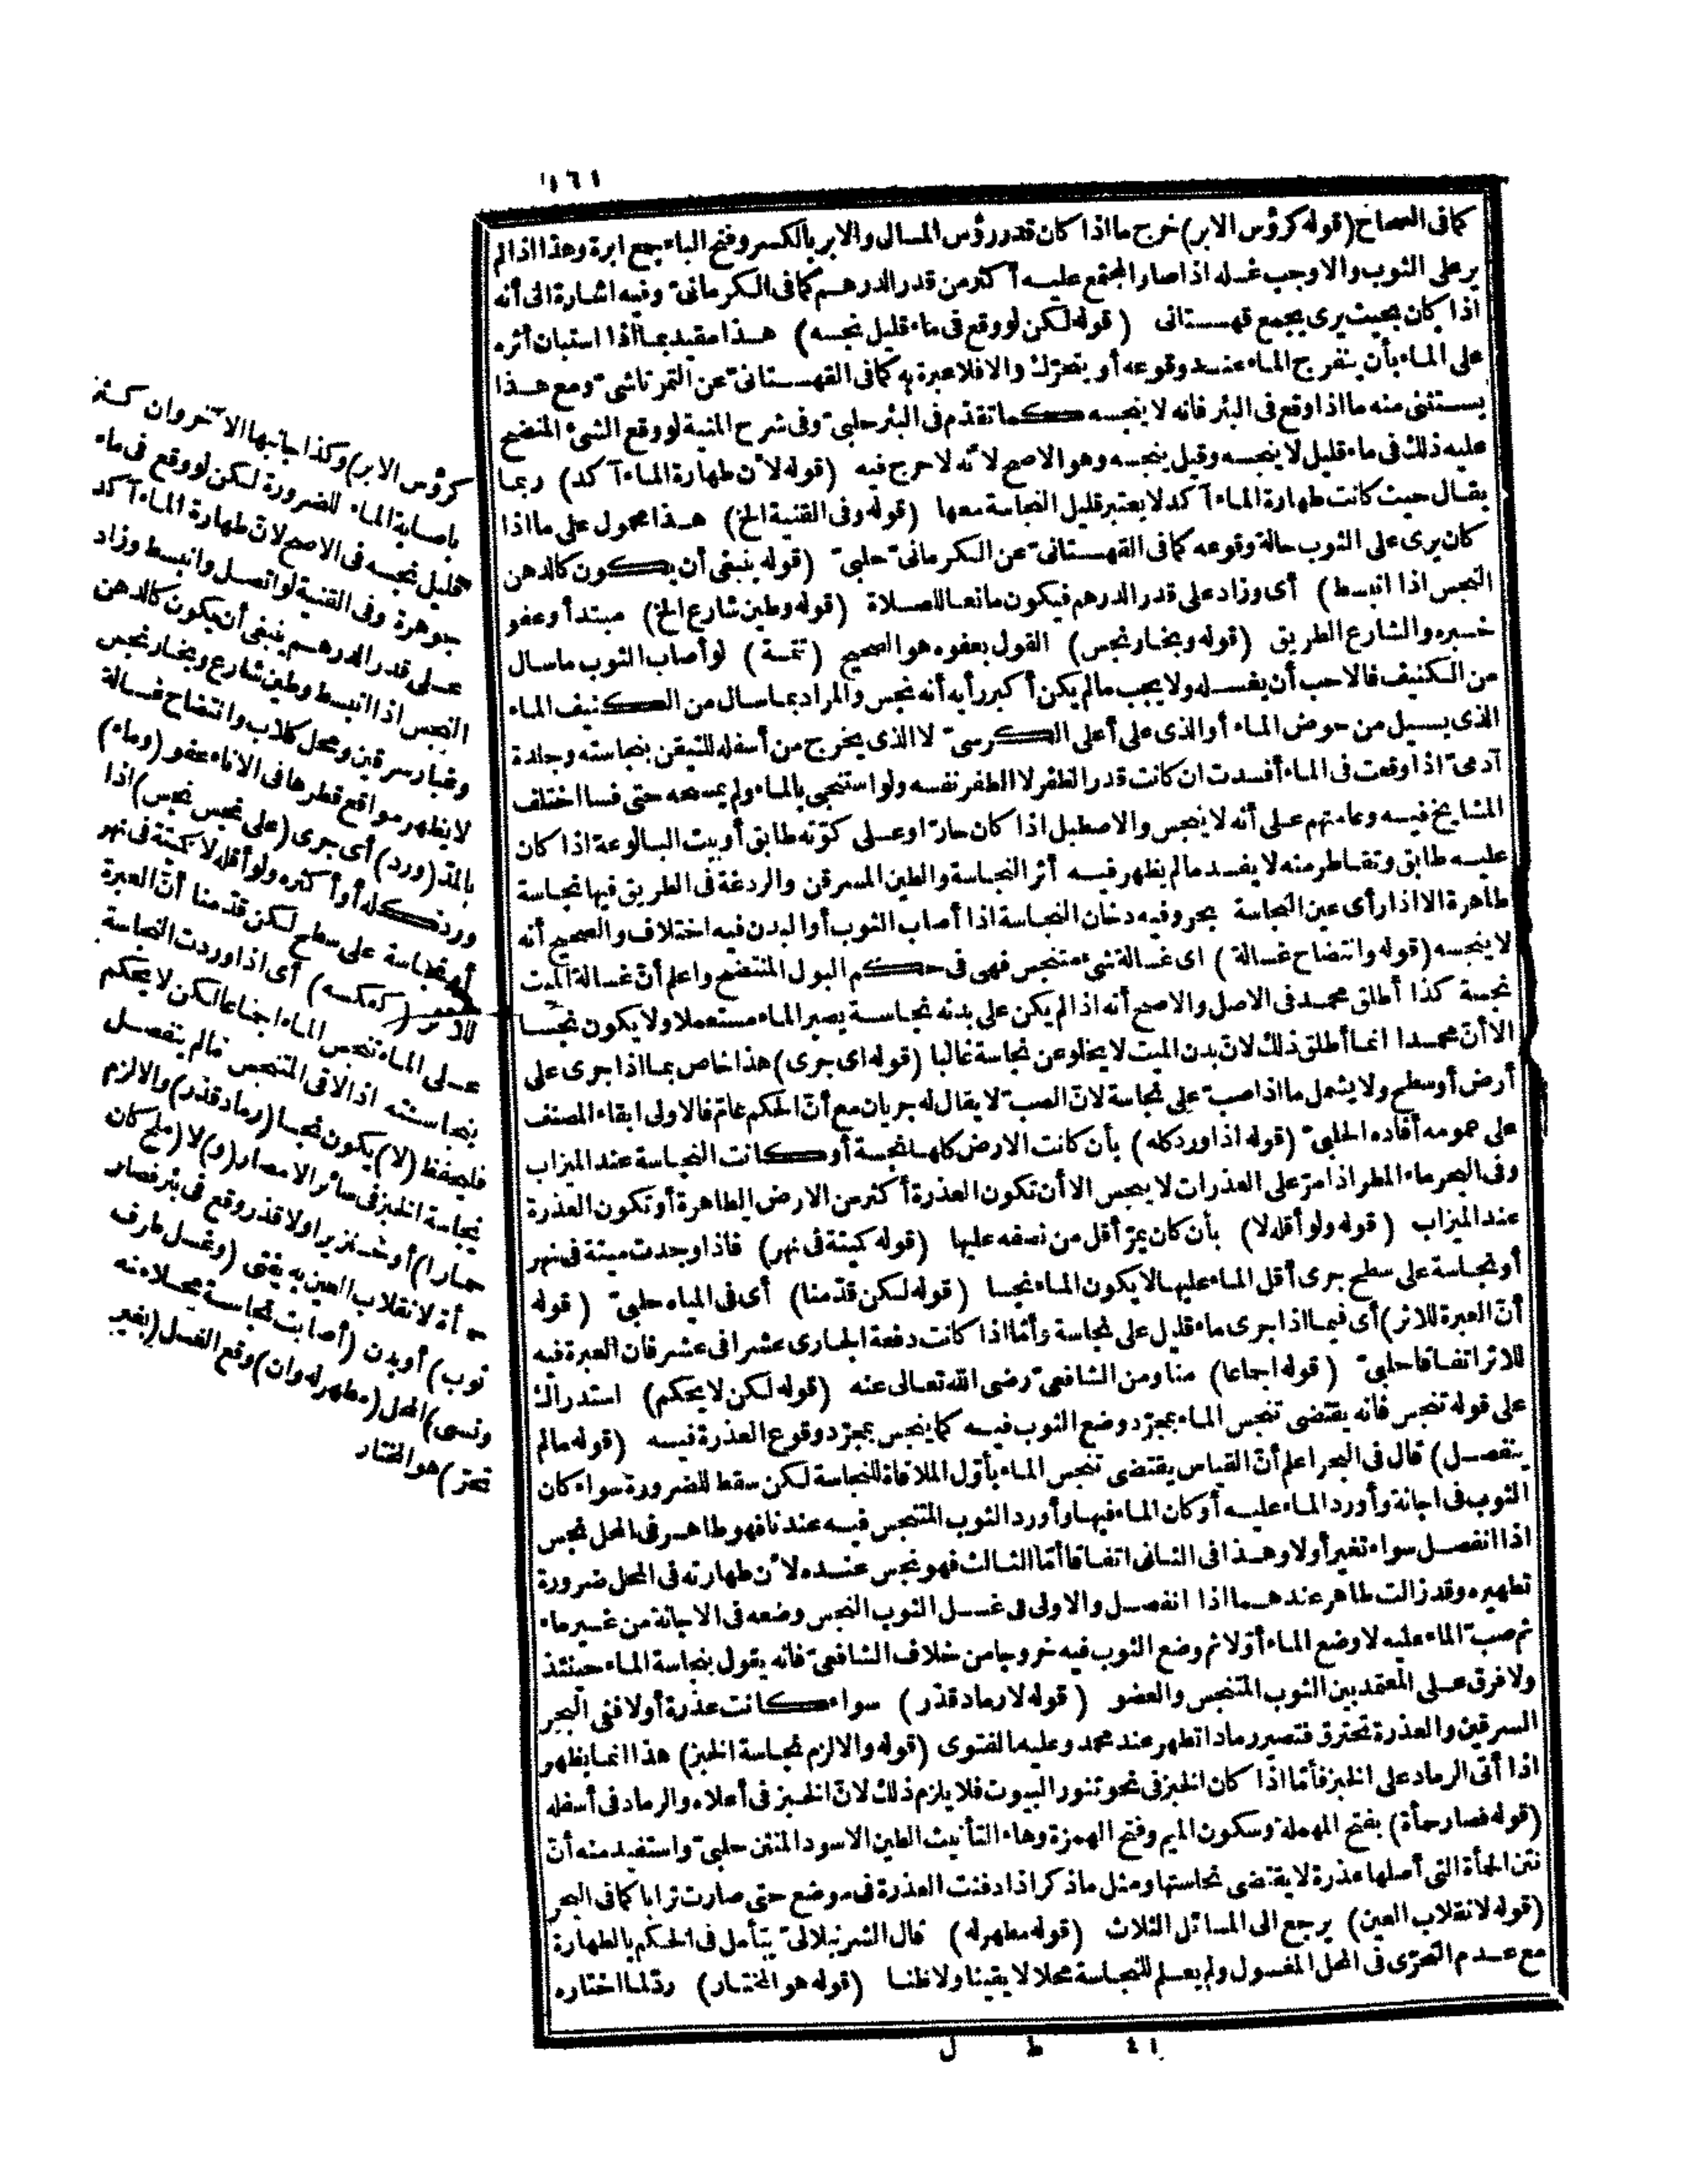 ١٦١
كما فى الصحاح (قوله كرؤس الابر) خرج ما اذا كان قدر رؤس المسال والابر بالكسر وفتح الباء جمع ابرة وهذا اذا لم
ير على الثوب والا وجب غسله اذا صار المجتمع عليه أكثر من قدر الدرهم كما فى الكرمانىّ وفيه اشارة الى أنه
اذا كان بحيث يرى يجمع قهستانى (قوله لكن لو وقع فى ماء قليل نجسه) هذا مقيد بما اذا استبان أثره
على الماء بأن ينفرج الماء عند وقوعه أو يتحرّك والا فلا عبرة به كما فى القهستانىّ عن التمرتاشىّ ومع هذا
يستثنى منه ما اذا وقع فى البئر فانه لا ينجسه كما تقدّم فى البئر حلبىّ وفى شرح المنية لو وقع الشئ المنتضح
عليه ذلك فى ماء قليل لا ينجسه وقيل ينجسه وهو الاصح لانّه لا حرج فيه (قوله لانّ طهارة الماء آكد) ربما
يقال حيث كانت طهارة الماء آكد لا يعتبر قليل النجاسة معها (قوله وفى القنية الخ) هذا محمول على ما اذا
كان يرى على الثوب حالة وقوعه كما فى القهستانىّ عن الكرمانىّ حلبىّ (قوله ينبغى أن يكون كالدهن
النجس اذا انبسط) أى وزاد على قدر الدرهم فيكون مانعا للصلاة (قوله وطين شارع الخ) مبتدأ وعفو
خبره والشارع الطريق (قوله وبخار نجس) القول بعفوه هو الصحيح (تتمة) لو أصاب الثوب ما سال
من الكنيف فالاحب أن يغسله ولا يجب ما لم يكن أكبر رأيه أنه نجس والمراد بما سال من الكنيف الماء
الذى يسيل من حوض الماء أو الذى على أعلى الكرسىّ لا الذى يخرج من أسفله للتيقن بنجاسته وجلدة
آدمىّ اذا وقعت فى الماء أفسدت ان كانت قدر الظفر لا الظفر نفسه ولو استنجى بالماء ولم يمسحه حتى فسا اختلف
المشايخ فيه وعامتهم على أنه لا ينجس والاصطبل اذا كان حارّا وعلى كوّته طابق أو بيت البالوعة اذا كان
عليه طابق وتقاطر منه لا يفسد ما لم يظهر فيه أثر النجاسة والطين المسرقن والردغة فى الطريق فيها نجاسة
طاهرة الا اذا رأى عين النجاسة بحر وفيه دخان النجاسة اذا أصاب الثوب أو البدن فيه اختلاف والصحيح أنه
لا ينجسه (قوله وانتضاح غسالة) اى غسالة شئ متنجس فهى فى حكم البول المنتضح واعلم أنّ غسالة الميت
نجسة كذا أطلق محمد فى الاصل والاصح أنه اذا لم يكن على بدنه نجاسة يصير الماء مستعملا ولا يكون نجسا
الا أنّ محمدا انما أطلق ذلك لانّ بدن الميت لا يخلو عن نجاسة غالبا (قوله اى جرى) هذا خاص بما اذا جرى على
أرض أو سطح ولا يشمل ما اذا صب على نجاسة لانّ الصب لا يقال له جريان مع أنّ الحكم عامّ فالاولى ابقاء المصنف
على عمومه أفاده الحلبىّ (قوله اذا ورد كله) بأن كانت الارض كلها نجسة أو كانت النجاسة عند الميزاب
وفى البحر ماء المطر اذا مرّ على العذرات لا ينجس الا أن تكون العذرة أكثر من الارض الطاهرة أو تكون العذرة
عند الميزاب (قوله ولو أقله لا) بأن كان يمرّ أقل من نصفه عليها (قوله كميتة فى نهر) فاذا وجدت ميتة فى نهر
أو نجاسة على سطح جرى أقل الماء عليها لا يكون الماء نجسا (قوله لكن قدّمنا) أى فى المياه حلبىّ (قوله
أنّ العبرة للاثر) أى فيما اذا جرى ماء قليل على نجاسة وأمّا اذا كانت دفعة الجارى عشرا فى عشر فان العبرة فيه
للاثر اتفاقا حلبىّ (قوله اجماعا) منا ومن الشافعىّ رضى الله تعالى عنه (قوله لكن لا يحكم) استدراك
على قوله تنجس فانه يقتضى تنجس الماء بمجرّد وضع الثوب فيه كما ينجس بمجرّد وقوع العذرة فيه (قوله ما لم
ينفصل) قال فى البحر اعلم أنّ القياس يقتضى تنجس الماء بأوّل الملاقاة للنجاسة لكن سقط للضرورة سواء كان
الثوب فى اجانة وأورد الماء عليه أو كان الماء فيها وأورد الثوب المتنجس فيه عندنا فهو طاهر فى المحل نجس
اذا انفصل سواء تغير أولا وهذا فى الثانى اتفاقا أمّا الثالث فهو نجس عنده لانّ طهارته فى المحل ضرورة
تطهيره وقد زالت طاهر عندهما اذا انفصل والاولى فى غسل الثوب النجس وضعه فى الاجانة من غير ماء
ثم صب الماء عليه لا وضع الماء أوّلا ثم وضع الثوب فيه خروجا من خلاف الشافعىّ فانه يقول بنجاسة الماء حينئذ
ولا فرق على المعتمد بين الثوب المتنجس والعضو (قوله لا رماد قذر) سواء كانت عذرة أولا ففى البحر
السرقين والعذرة تحترق فتصير رمادا تطهر عند محمد وعليه الفتوى (قوله والا لزم نجاسة الخبز) هذا انما يظهر
اذا ألقى الرماد على الخبز فأمّا اذا كان الخبز فى نحو تنور البيوت فلا يلزم ذلك لانّ الخبز فى أعلاه والرماد فى أسفله
(قوله فصار حمأة) بفتح المهملة وسكون الميم وفتح الهمزة وهاء التأنيث الطين الاسود المنتن حلبىّ واستفيد منه أنّ
نتن الحمأة التى أصلها عذرة لا يقتضى نجاستها ومثل ما ذكر اذا دفنت العذرة فى موضع حتى صارت ترابا كما فى البحر
(قوله لانقلاب العين) يرجع الى المسائل الثلاث (قوله مطهر له) قال الشرنبلالىّ يتأمل فى الحكم بالطهارة
مع عدم التحرّى فى المحل المغسول ولم يعلم للنجاسة محلا لا يقينا ولا ظنا (قوله هو المختار) ردّ لما اختاره
كرؤس الابر) وكذا جانبها الآخر وان كثر
باصابة الماء للضرورة لكن لو وقع فى ماء
قليل نجسه فى الاصح لانّ طهارة الماء آكد
جوهرة وفى القنية لو اتصل وانبسط وزاد
على قدر الدرهم ينبغى أن يكون كالدهن
النجس اذا انبسط وطين شارع وبخار نجس
وغبار سرقين ومحل كلاب وانتضاح غسالة
لا يظهر مواقع قطرها فى الاناء عفو (وماء)
بالمدّ (ورد) أى جرى (على نجس نجس) اذا
ورد كله أو أكثره ولو أقله لا كميتة فى نهر
أو نجاسة على سطح لكن قدّمنا أنّ العبرة
للاثر (كعكسه) أى اذا وردت النجاسة
على الماء تنجس الماء اجماعا لكن لا يحكم
بنجاسته اذا لاقى المتنجس ما لم ينفصل
فليحفظ (لا) يكون نجسا (رماد قذر) والا لزم
نجاسة الخبز فى سائر الامصار (و) لا (ملح كان
حمارا) أو خنزيرا ولا قذر وقع فى بئر فصار
حمأة لانقلاب العين به يفتى (وغسل طرف
ثوب) أو بدن (أصابت نجاسة محلا منه
ونسى) المحل (مطهر له وان) وقع الغسل (بغير
تحرّ) هو المختار
٤١ ط ل